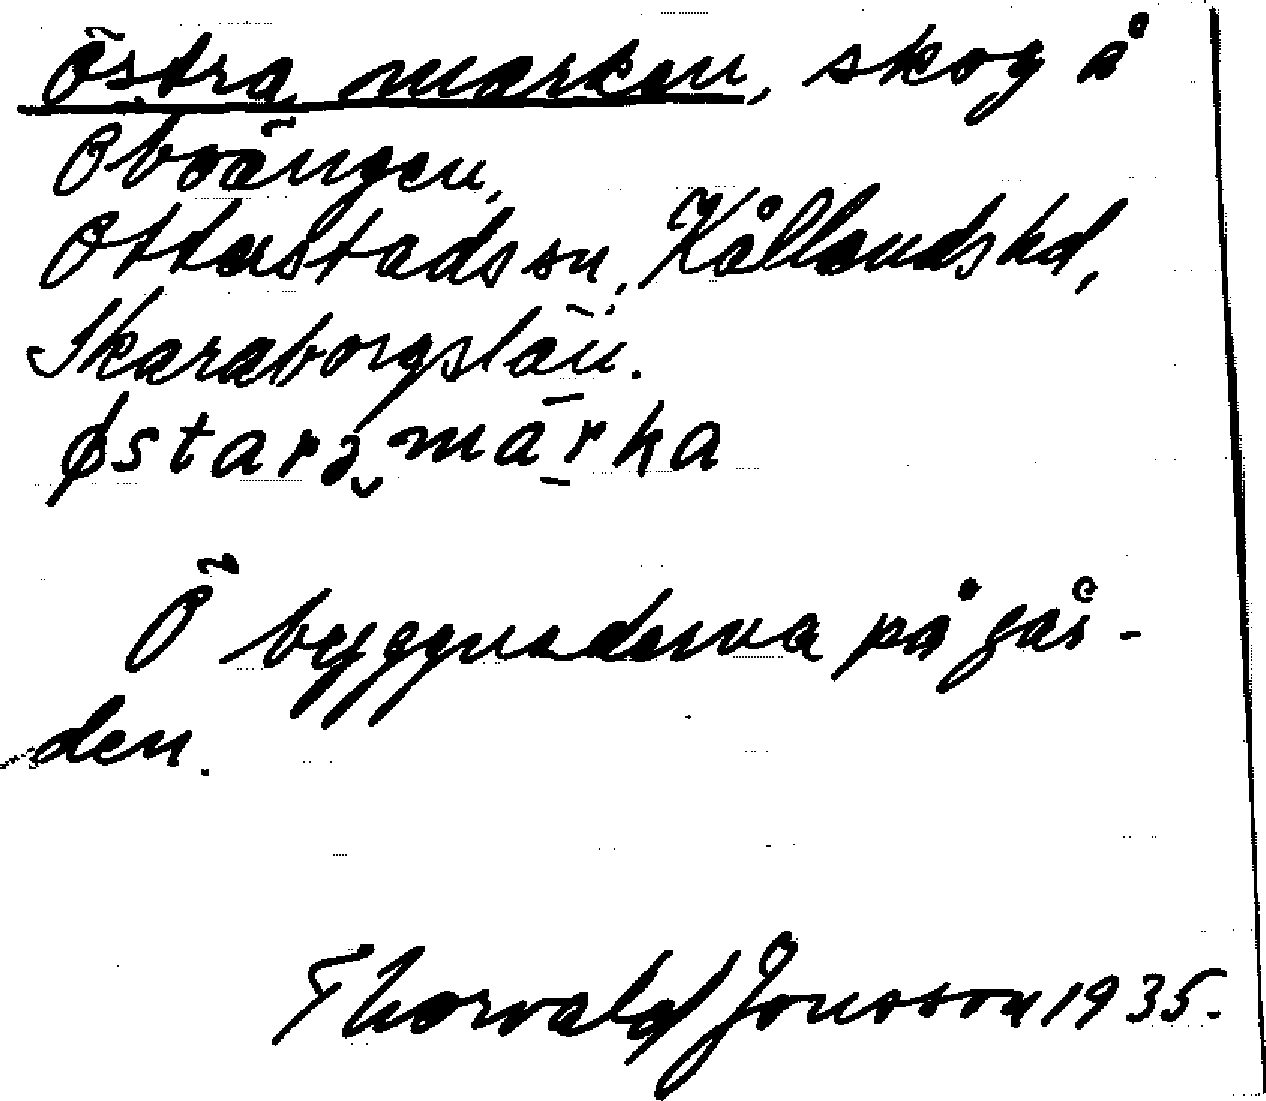 Östra marken, skog å
Oboängen,
Otterstads sn, Kållands hd,
Skaraborgs län.
østara märka
Ö byggnaderna på går-
den.
Thorvald Jonsson 1935.